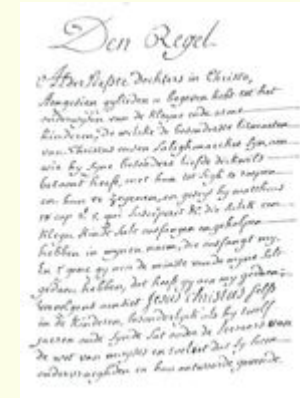 Den Regel
Alderliefste dochters in Christo,
Aengesien gylieden u begeven hebt tot het
onderwysen van de kleyne ende arme
kinderen, de welcke de besonderste lidmaeten
van Christus onsen Salighmaecker syn, aen
wie hy syne besondere liefde dickwils
betoont heeft, met hun tot sigh te roepen
en hun te zegenen, en
18 cap
kleyn kindt sal ontfangen en geholpen
hebben in mynen naem, die ontfangt my.
En t' gene gy aen de minste van de myne sult
gedaen hebben, dat heeft gy aen my gedaen:
Jesus Christus selfs
in de kinderen, besonderlyck als hy twelf
jaeren oudt synde sat onder de leeraers van
de wet van moyses en
ondervraeghden en hun antwoorde gevende.